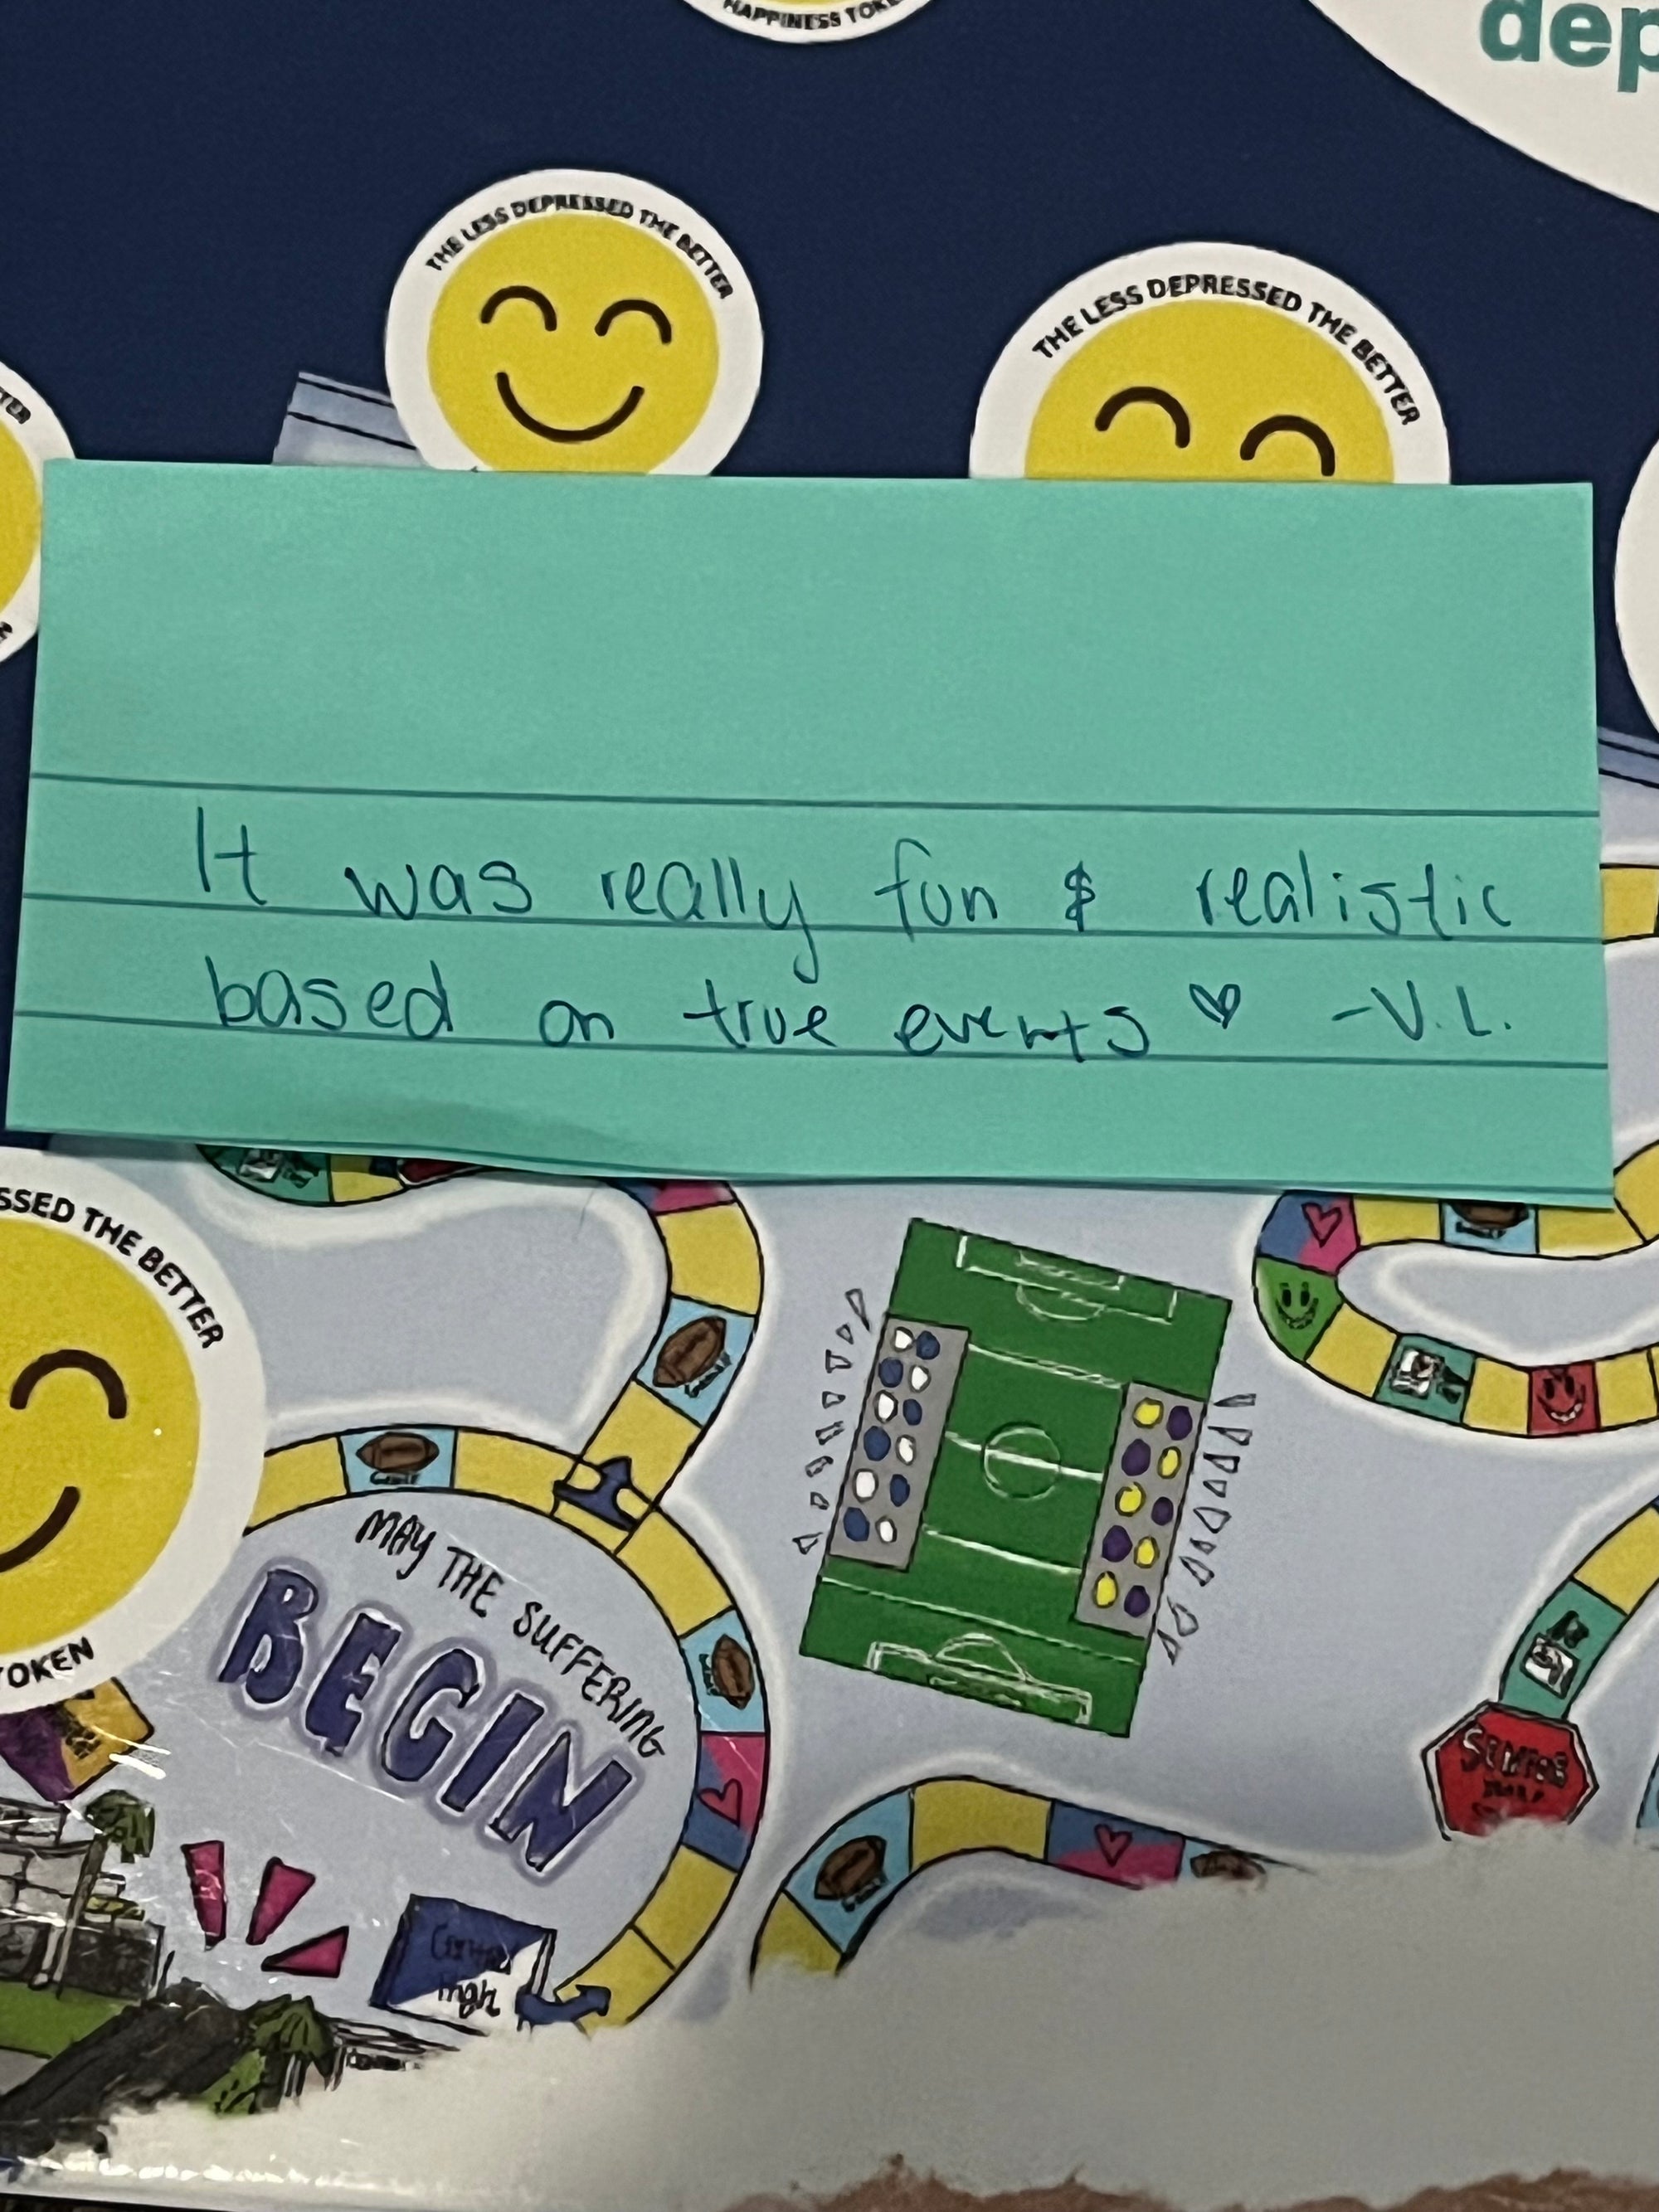 HAPPINESS TOKEN
dep
THE LESS DEPRESSED THE BETTER
THE LESS DEPRESSED THE BETTER
It was really fun & realistic
based on true events ♡ -V.L.
SSED THE BETTER
TOKEN
MAY THE SUFFERING
BEGIN